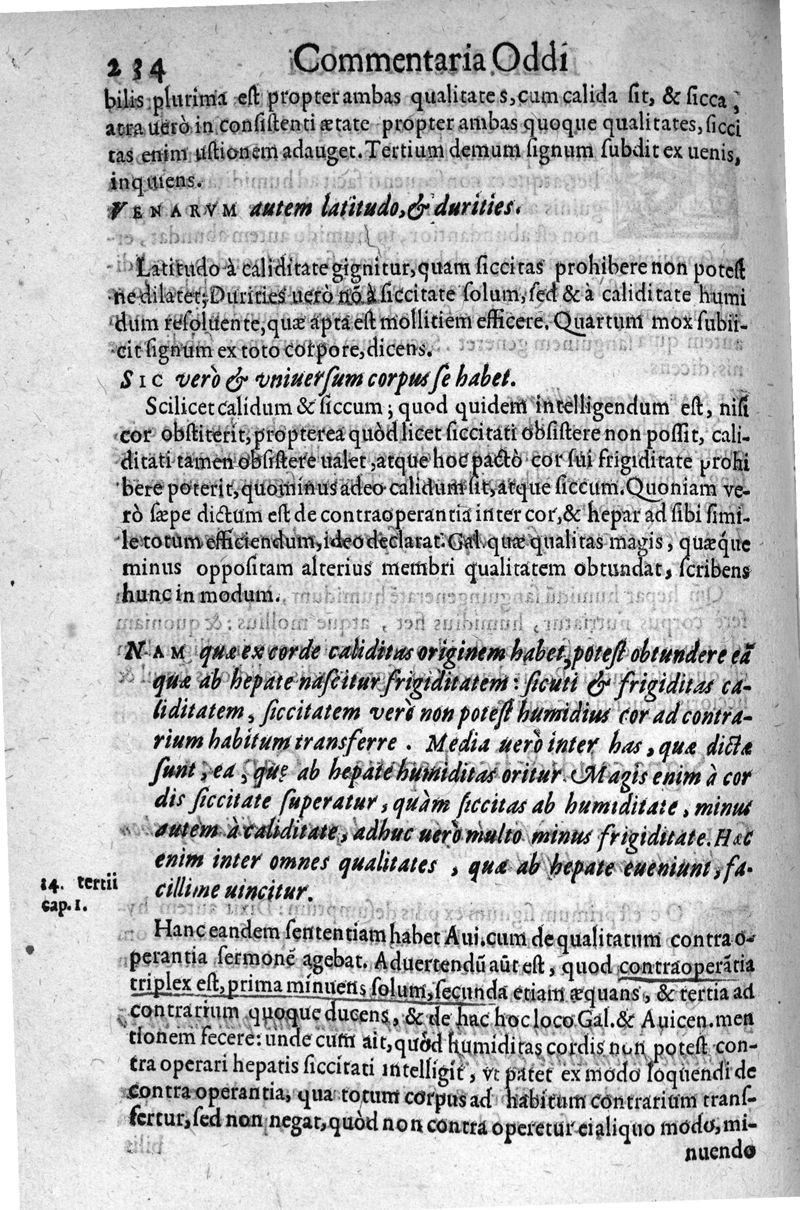 234 Commentaria Oddi
bilis plurima est propter ambas qualitates, cum calida sit, & sicca,
atra uerò in consistenti ætate propter ambas quoque qualitates, sicci
tas enim ustionem adauget. Tertium demum signum subdit ex uenis,
inquiens.
VENARVM autem latitudo, & durities.
Latitudo à caliditate gignitur, quam siccitas prohibere non potest
ne dilatet; Durities uerò nõ à siccitate solum, sed & à caliditate humi
dum resoluente, quæ apta est mollitiem efficere. Quartum mox subii-
cit signum ex toto corpore, dicens.
SIC verò & vniuersum corpus se habet.
Scilicet calidum & siccum; quod quidem intelligendum est, nisi
cor obstiterit, propterea quòd licet siccitati obsistere non possit, cali-
ditati tamen obsistere ualet, atque hoc pacto cor sui frigiditate prohi
bere poterit, quominus adeo calidum sit, atque siccum. Quoniam ve-
rò sæpe dictum est de contraoperantia inter cor, & hepar ad sibi simi-
le totum efficiendum, ideo declarat Gal. quæ qualitas magis, quæque
minus oppositam alterius membri qualitatem obtundat, scribens
hunc in modum.
NAM quæ ex corde caliditas originem habet, potest obtundere eã
quæ ab hepate nascitur frigiditatem: sicuti & frigiditas ca-
liditatem, siccitatem verò non potest humidius cor ad contra-
rium habitum transferre. Media uerò inter has, quæ dictæ
sunt, ea, quę ab hepate humiditas oritur. Magis enim à cor
dis siccitate superatur, quàm siccitas ab humiditate, minus
autem à caliditate, adhuc uerò multo minus frigiditate. Hæc
enim inter omnes qualitates, quæ ab hepate eueniunt, fa-
cillime uincitur.
14. tertii
cap. 1.
Hanc eandem sententiam habet Aui. cum de qualitatum contra o-
perantia sermonē agebat. Aduertendũ aũt est, quod contraoperãtia
triplex est, prima minuens solum, secunda etiam æquans, & tertia ad
contrarium quoque ducens, & de hac hoc loco Gal. & Auicen. men
tionem fecere: unde cum ait, quòd humiditas cordis non potest con-
tra operari hepatis siccitati intelligit, vt patet ex modo loquendi de
contra operantia, qua totum corpus ad habitum contrarium trans-
fertur, sed non negat, quòd non contra operetur ei aliquo modo, mi-
nuendo